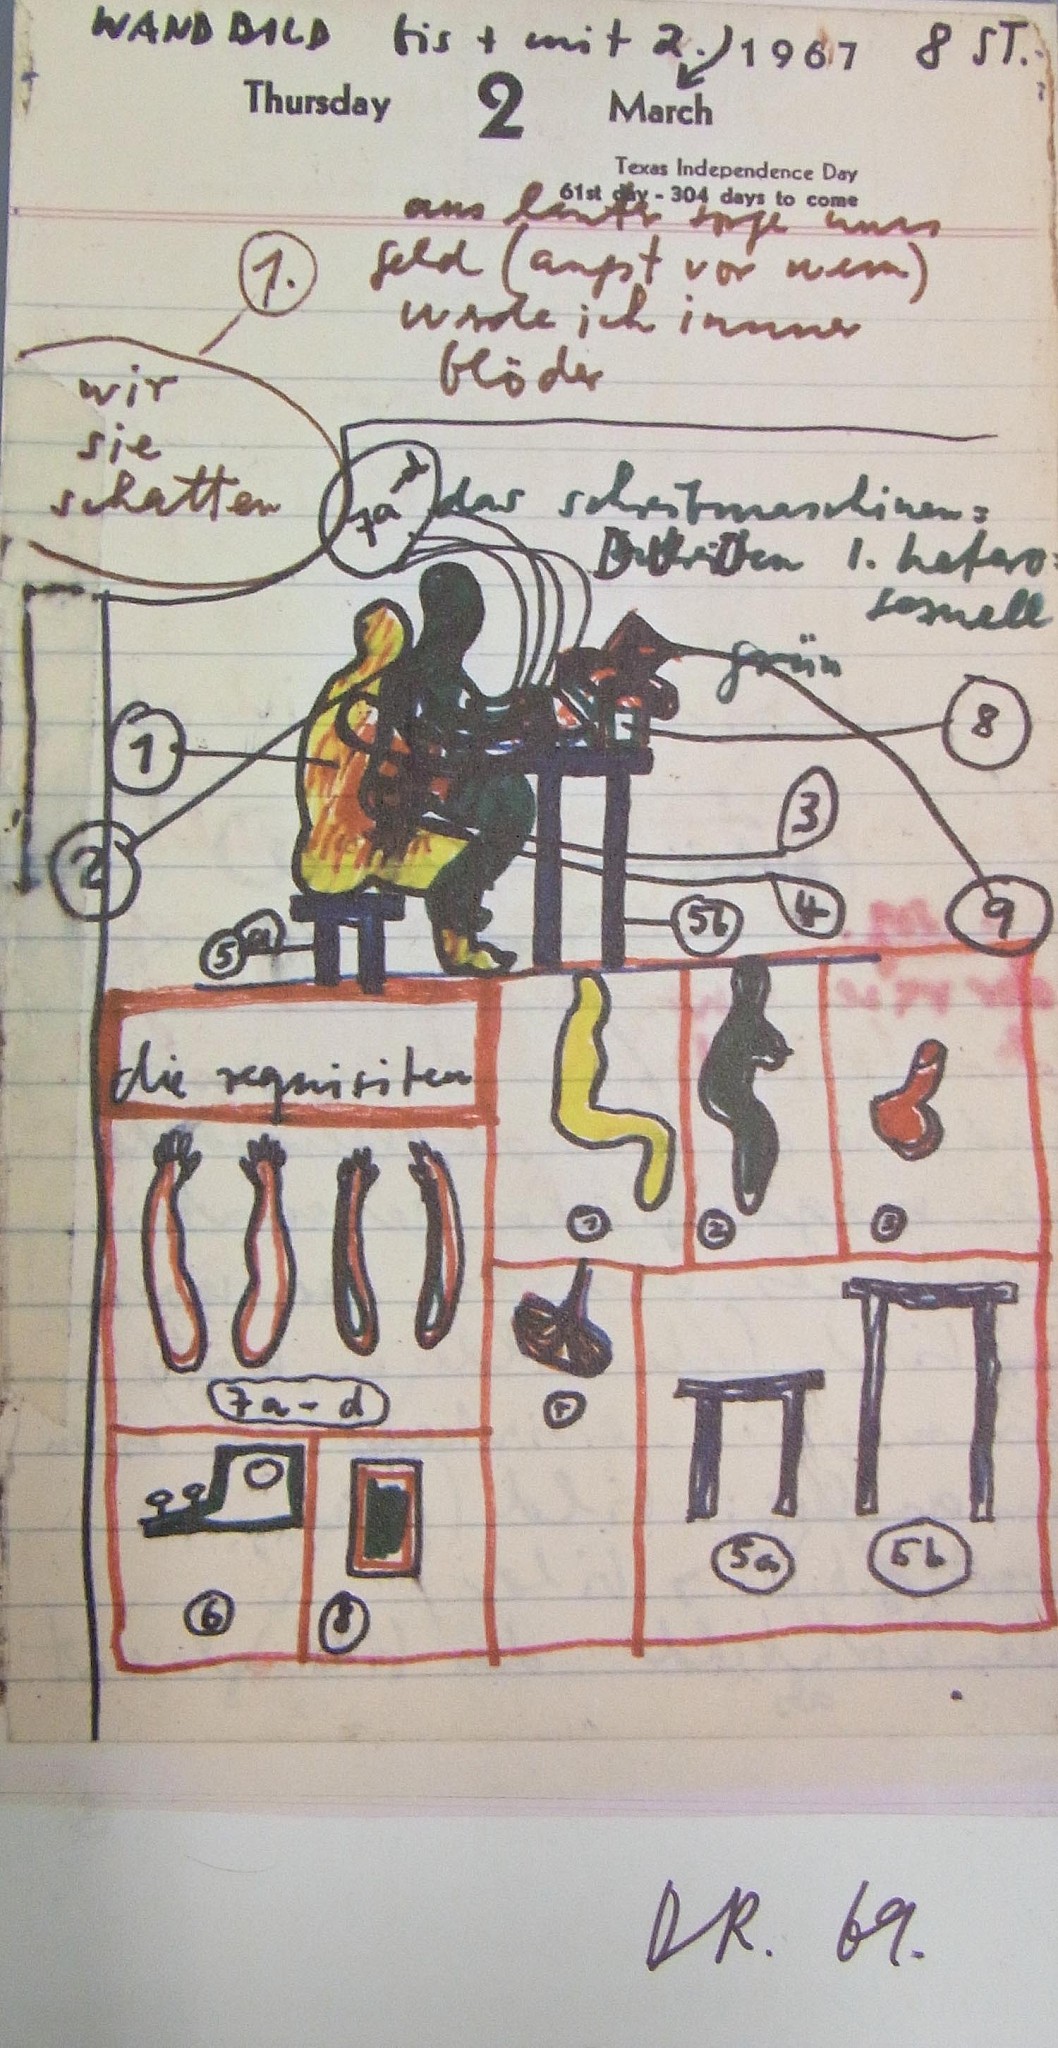 WANDBILD bis + mit 2.) 1967 8 ST.
Thursday 2 March
Texas Independence Day
61st day - 304 days to come
aus lauter sorge ums
geld (angst vor wem)
werde ich immer
blöder
1.
wir
sie
schatten
7a-d
das schreibmaschinen=
1. hetero=
sexuell
grün
1
8
2
3
4
9
5a
5b
die requisiten
1
2
3
7a-d
5a
5b
6
8
DR. 69.